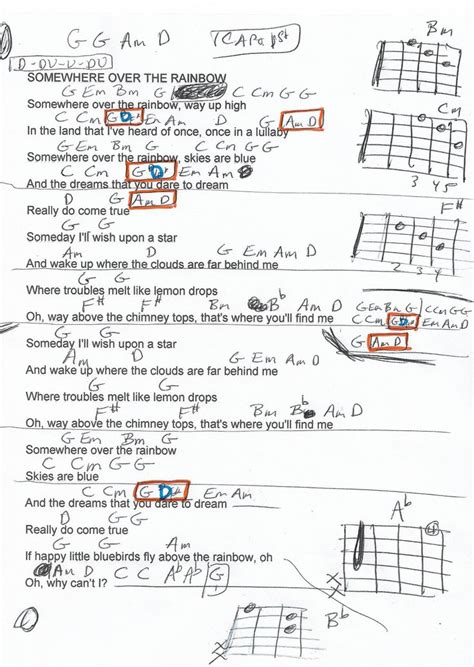 G G Am D TCAPO 1st
D-DU-U-DU
SOMEWHERE OVER THE RAINBOW
Bm
G Em Bm G C Cm G G
Somewhere over the rainbow, way up high
C Cm G D Em Am D G Am D
In the land that I've heard of once, once in a lullaby
Cm
G Em Bm G C Cm G G
Somewhere over the rainbow, skies are blue
C Cm G D Em Am
And the dreams that you dare to dream
3 4 5
D G Am D
Really do come true
F#
G G
Someday I'll wish upon a star
Am D G Em Am D
And wake up where the clouds are far behind me
2 3 4
G G
Where troubles melt like lemon drops
F# F# Bm Bb Am D G Em Bm G C Cm G G
Oh, way above the chimney tops, that's where you'll find me C Cm G D Em Am D
G Am D
G G
Someday I'll wish upon a star
Am D G Em Am D
And wake up where the clouds are far behind me
G G
Where troubles melt like lemon drops
F# F# Bm Bb Am D
Oh, way above the chimney tops, that's where you'll find me
G Em Bm G
Somewhere over the rainbow
C Cm G G
Skies are blue
C Cm G D Em Am
And the dreams that you dare to dream
Ab
D G G
Really do come true
G G Am
If happy little bluebirds fly above the rainbow, oh
Am D C C Ab Ab G
Oh, why can't I?
X
X
Bb
X
X